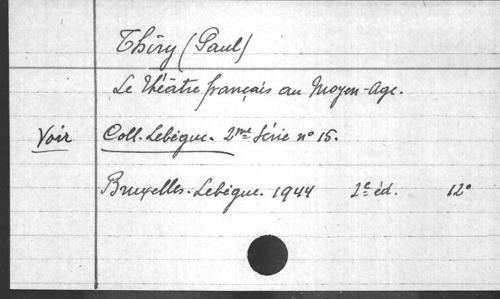 Thiry (Paul)
Le théâtre français au Moyen-Age.
Voir Coll. Lebègue. 2me Série n° 15.
Bruxelles. Lebègue. 1944 2e éd. 12°